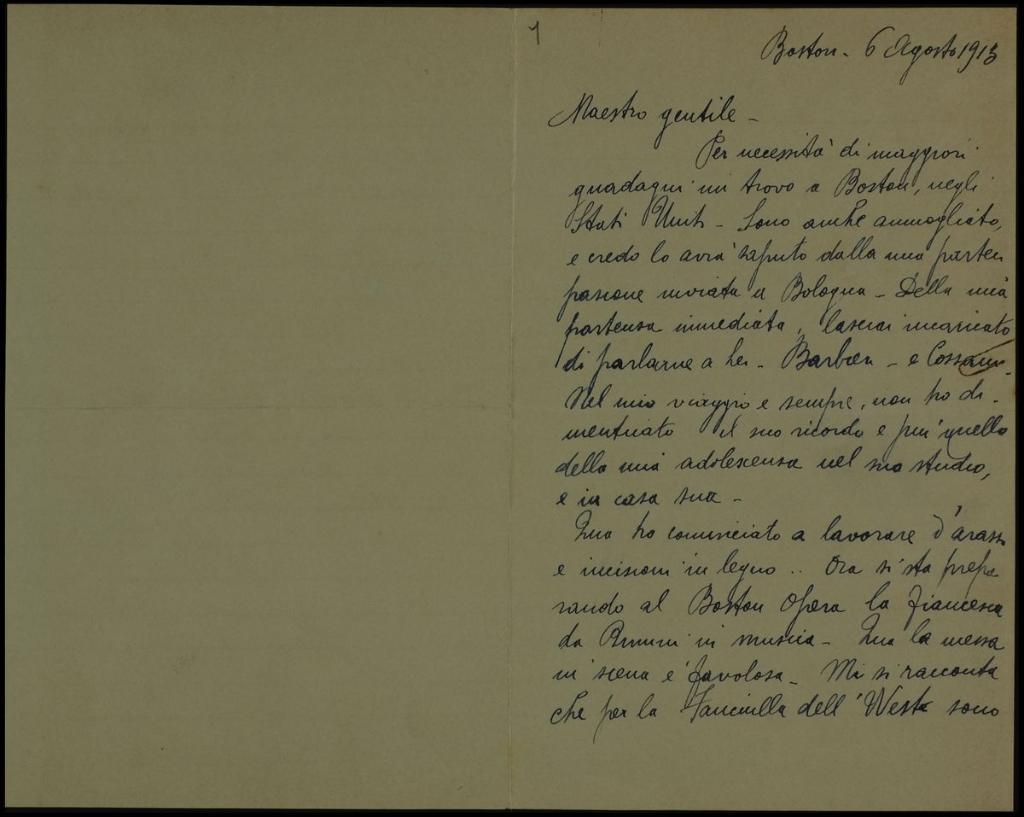 1
Boston - 6 Agosto 1913
Maestro gentile -
Per necessità di maggiori
guadagni mi trovo a Boston, negli
Stati Uniti - Sono anche ammogliato,
e credo lo avrà saputo dalla mia parteci
pazione inviata a Bologna - Della mia
partenza immediata, lasciai incaricato
di parlarne a lei - - e
Nel mio viaggio e sempre, non ho di-
menticato il suo ricordo e più quello
della mia adolescenza nel suo studio,
e in casa sua -
Qua ho cominciato a lavorare d'arazzi
e incisioni in legno .. Ora si sta prepa
rando al Boston Opera la Francesca
da Rimini in musica - Qua la messa
in scena è favolosa - Mi si racconta
che per la Fanciulla dell'West sono